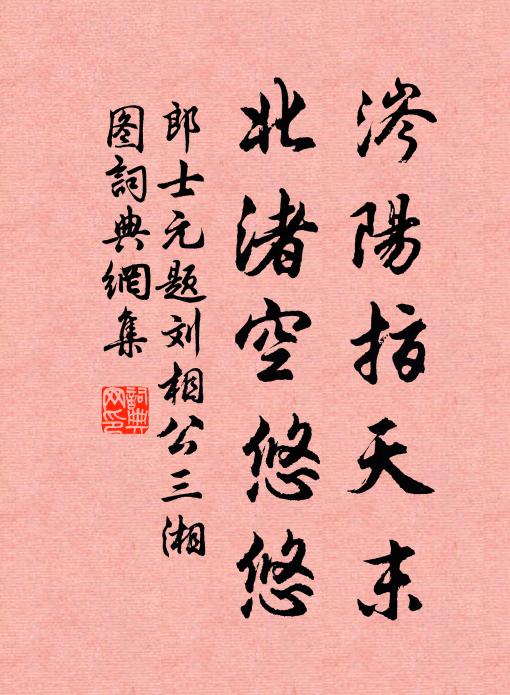 涔陽指天末
北渚空悠悠
郎士元题刘相公三湘
图詞典網集
詞典
网印